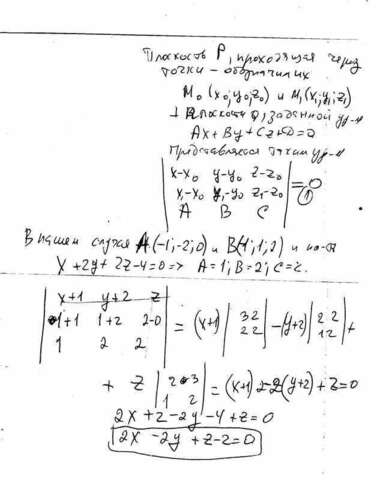 Плоскость P, проходящая через
точки - обозначим их
M₀ (x₀; y₀; z₀) и M₁(x₁; y₁; z₁)
⊥ плоскости Q, заданной ур-м
Ax + By + Cz + D = 0
Представляется таким ур-м
| x-x₀ y-y₀ z-z₀ |
| x₁-x₀ y₁-y₀ z₁-z₀ | = 0
| A B C | (1)
В нашем случае A(-1; -2; 0) и B(1; 1; 2) и
x + 2y + 2z - 4 = 0 => A = 1; B = 2; C = 2.
| x+1 y+2 z |
| 1+1 1+2 2-0 | = (x+1) | 3 2 | - (y+2) | 2 2 | +
| 1 2 2 | | 2 2 | | 1 2 |
+ z | 2 3 | = (x+1)2 - 2(y+2) + z = 0
| 1 2 |
2x + 2 - 2y - 4 + z = 0
2x - 2y + z - 2 = 0